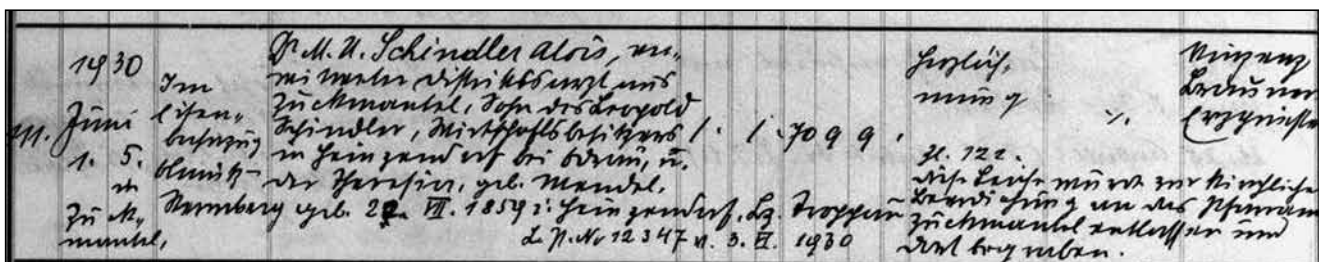 1930
Juni
1. 5.
in
Zuck-
mantel,
Im
Eisen-
bahnzug
Olmütz-
Sternberg
Dr. M. U. Schindler Alois, ver-
witweter Distriktsarzt aus
Zuckmantel, Sohn des Leopold
Schindler, Wirtschaftsbesitzers
in Heinzendorf bei Bärn, u.
der Theresia, geb. Mendel.
geb. VII. 1859 i. Heinzendorf, Bz. Troppau
L. P. Nr 12347 v. 3. VI. 1930
1. 1. 70 9 9.
Herzläh-
mung
%.
Zl. 122.
Diese Leiche wurde zur kirchlichen
Beerdigung an das Pfarramt
Zuckmantel entlassen und
dort begraben.
Vinzenz
Brauner
Erzpriester